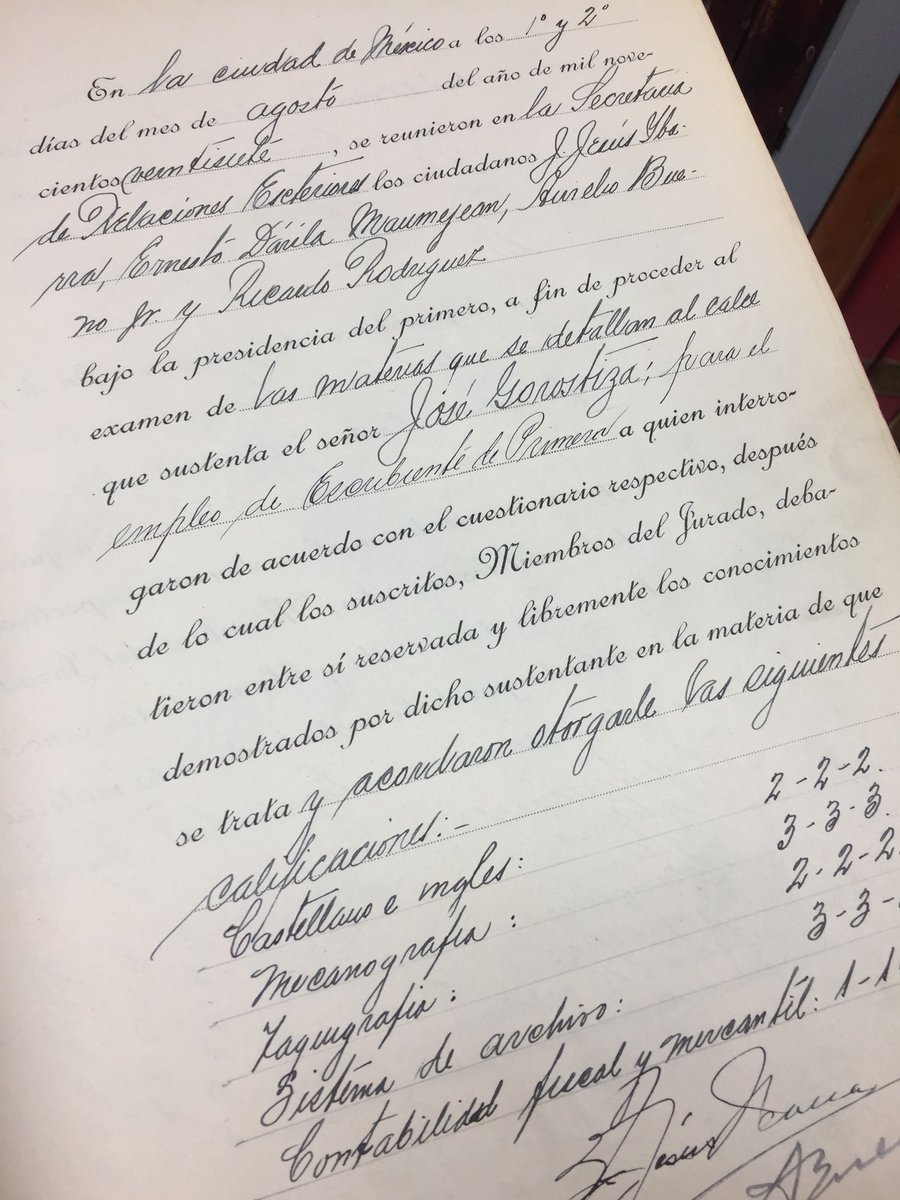 En la ciudad de México a los 1º y 2º
días del mes de agosto del año de mil nove-
cientos ventisiete, se reunieron en la Secretaria
de Relaciones Exteriores los ciudadanos J. Jesús Yba-
rra, Ernesto Dávila Maumejean, Aurelio Bue-
no Jr. y Ricardo Rodriguez
bajo la presidencia del primero, a fin de proceder al
examen de las materias que se detallan al calce
que sustenta el señor José Gorostiza; para el
empleo de Escribiente de Primera a quien interro-
garon de acuerdo con el cuestionario respectivo, después
de lo cual los suscritos, Miembros del Jurado, deba-
tieron entre sí reservada y libremente los conocimientos
demostrados por dicho sustentante en la materia de que
se trata y acordaron otorgarle las siguientes
calificaciones:-
Castellano e ingles: 2-2-2.
Mecanografia: 3-3-3.
Taquigrafia: 2-2-2
Sistema de archivo: 3-3-
Contabilidad fiscal y mercantil: 1-1
J. Jesús